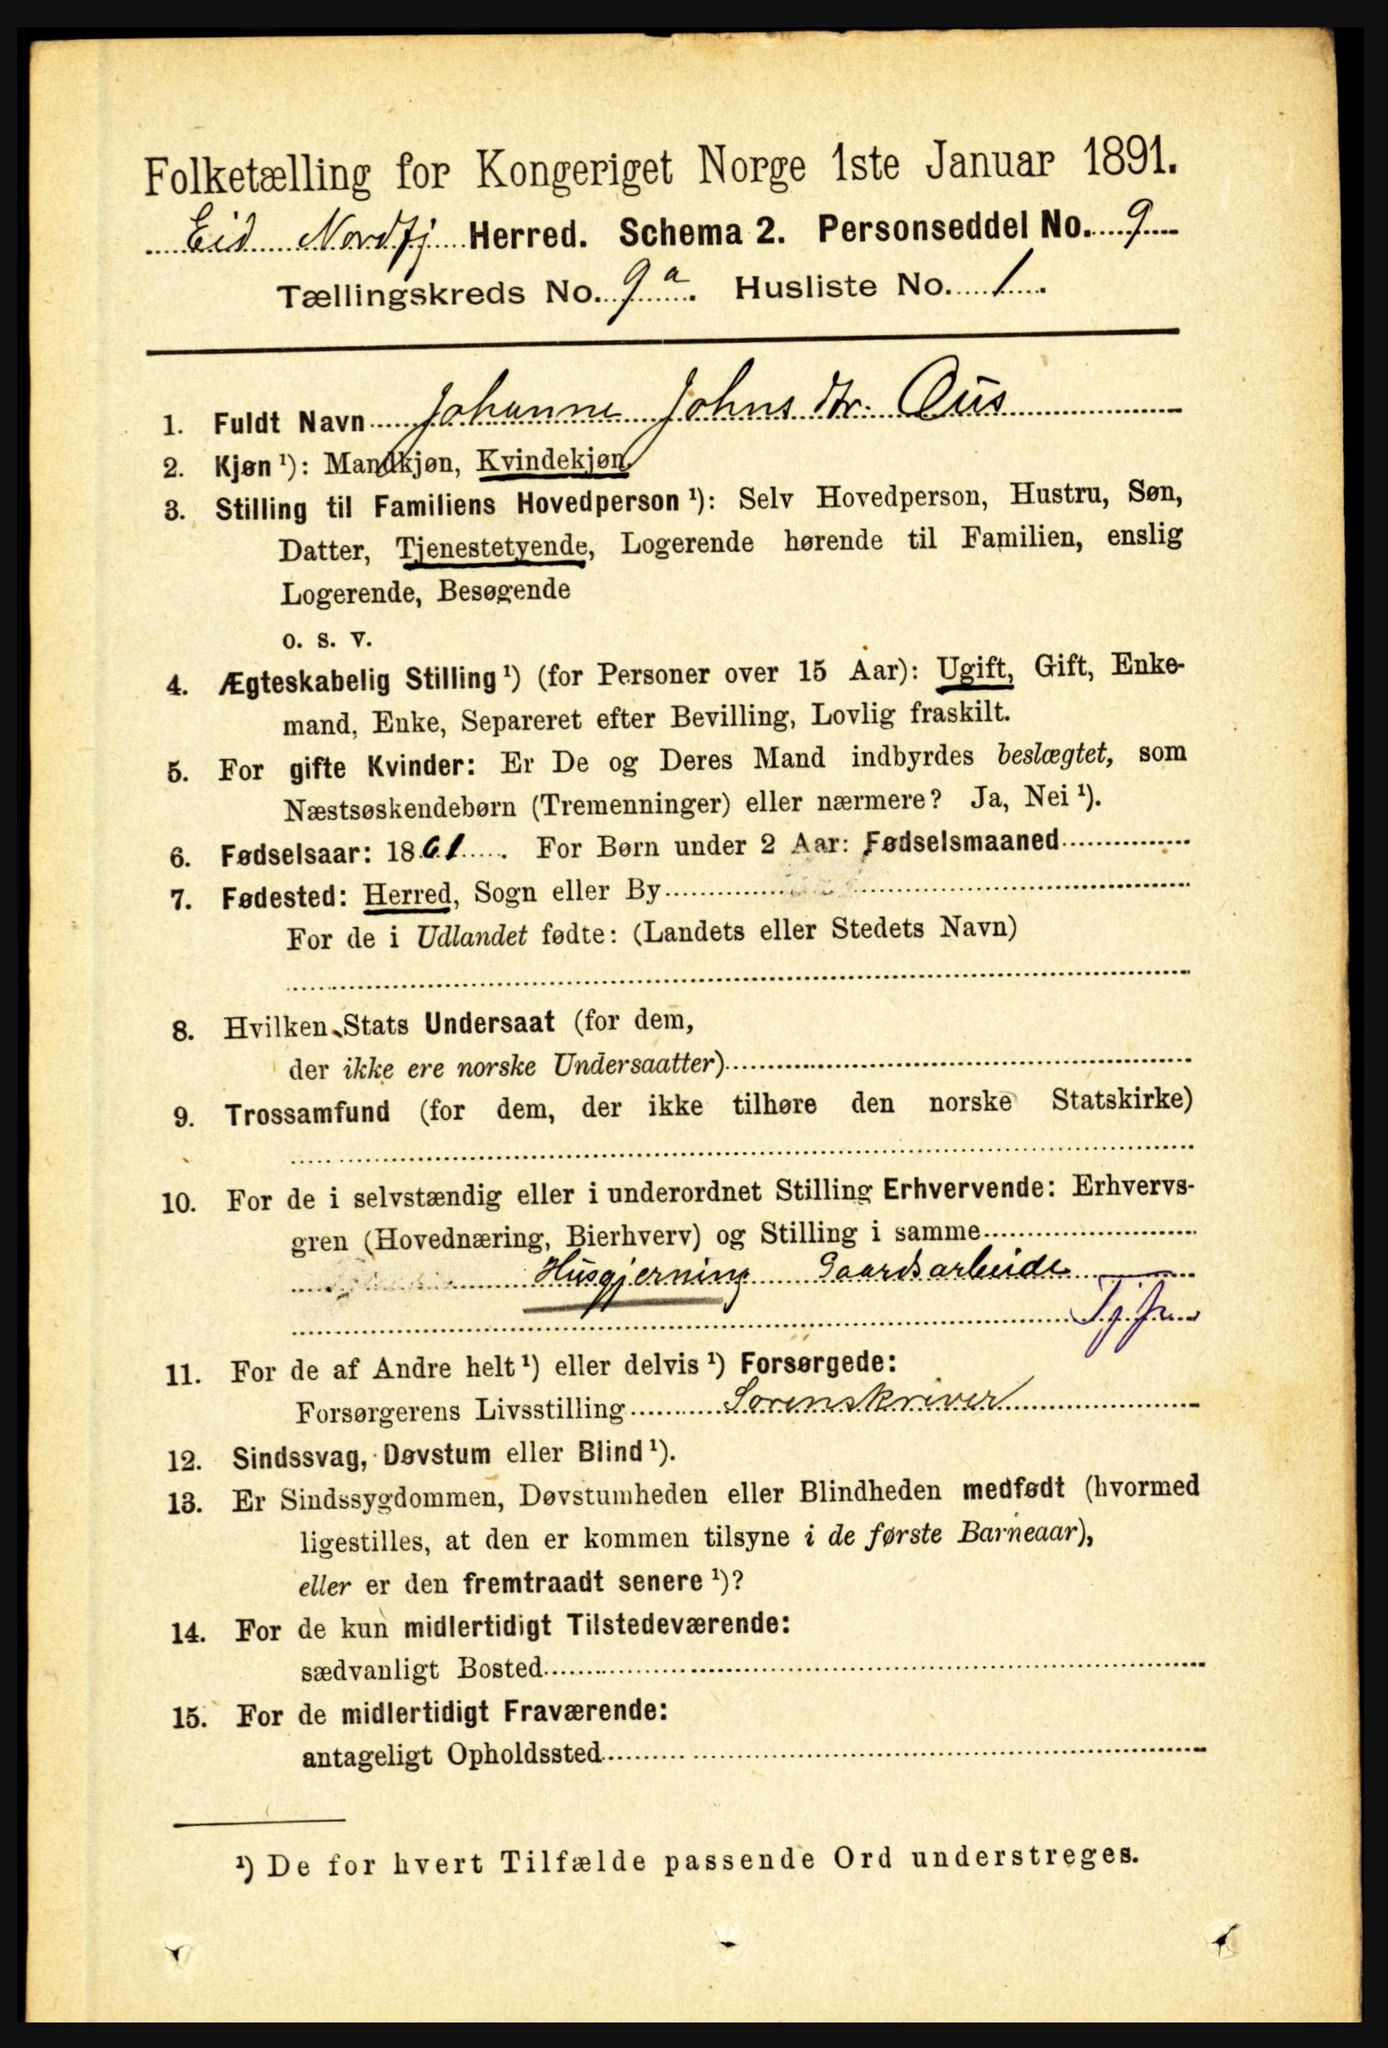 Folketælling for Kongeriget Norge 1ste Januar 1891.
Eid Nordfj Herred. Schema 2. Personseddel No. 9
Tællingskreds No. 9a. Husliste No. 1.
1. Fuldt Navn Johanne Johnsdtr. Ous
2. Kjøn ¹): Mandkjøn, Kvindekjøn.
3. Stilling til Familiens Hovedperson ¹): Selv Hovedperson, Hustru, Søn,
Datter, Tjenestetyende, Logerende hørende til Familien, enslig
Logerende, Besøgende
o. s. v.
4. Ægteskabelig Stilling ¹) (for Personer over 15 Aar): Ugift, Gift, Enke-
mand, Enke, Separeret efter Bevilling, Lovlig fraskilt.
5. For gifte Kvinder: Er De og Deres Mand indbyrdes beslægtet, som
Næstsøskendebørn (Tremenninger) eller nærmere? Ja, Nei ¹).
6. Fødselsaar: 1861. For Børn under 2 Aar: Fødselsmaaned
7. Fødested: Herred, Sogn eller By
For de i Udlandet fødte: (Landets eller Stedets Navn)
8. Hvilken Stats Undersaat (for dem,
der ikke ere norske Undersaatter)
9. Trossamfund (for dem, der ikke tilhøre den norske Statskirke)
10. For de i selvstændig eller i underordnet Stilling Erhvervende: Erhvervs-
gren (Hovednæring, Bierhverv) og Stilling i samme
Husgjerning Gaardsarbeide
11. For de af Andre helt ¹) eller delvis ¹) Forsørgede:
Forsørgerens Livsstilling Sorenskriver
12. Sindssvag, Døvstum eller Blind ¹).
13. Er Sindssygdommen, Døvstumheden eller Blindheden medfødt (hvormed
ligestilles, at den er kommen tilsyne i de første Barneaar),
eller er den fremtraadt senere ¹)?
14. For de kun midlertidigt Tilstedeværende:
sædvanligt Bosted
15. For de midlertidigt Fraværende:
antageligt Opholdssted
¹) De for hvert Tilfælde passende Ord understreges.